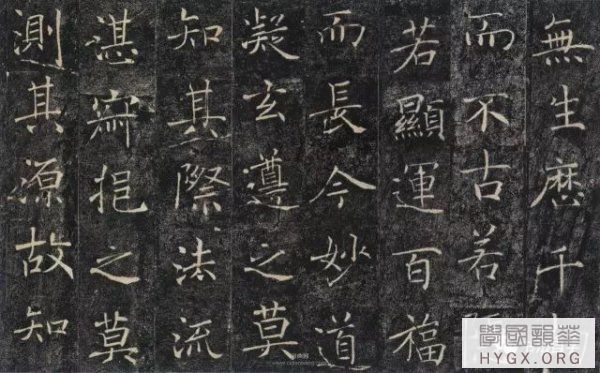 無生歷千
而不古若
若顯運百福
而長今妙道
凝玄遵之莫
知其際法流
湛寂挹之莫
測其源故知
學國韻華
HYGX.ORG